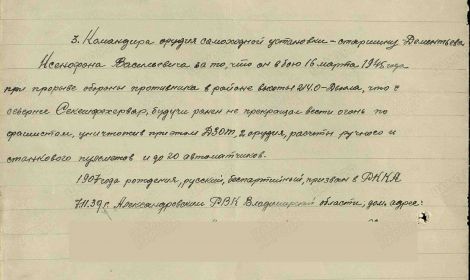 3. Командира орудия самоходной установки – старшину Дементьева
Ксенофона Васильевича за то, что он в бою 16 марта 1945 года
при прорыве обороны противника в районе высоты 214.0 – Дьюла, что с
севернее Секешфехервар, будучи ранен не прекращал вести огонь по
фашистам, уничтожив при этом ДЗОТ, 2 орудия, расчеты ручного и
станкового пулеметов и до 20 автоматчиков.
1907 года рождения, русский, беспартийный, призван в РККА
7.11.39 г. Александровским РВК Владимирской области, дом. адрес: